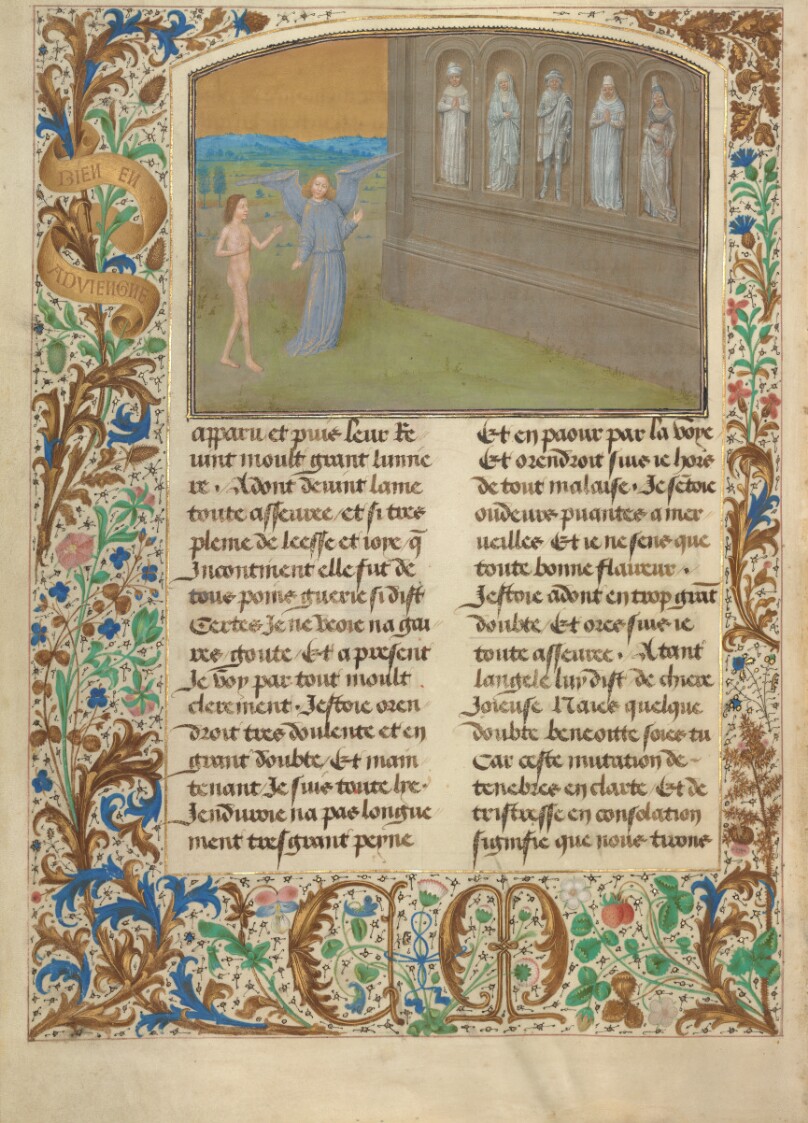 BIEN EN
ADVIENGNE
apparu et puis leur Re
uint moult grant lumie
re. Adont deuint lame
toute asseuree et si tres
pleine de leesse et ioye q̄
Incontinent elle fut de
tous poins guerie si dist
Certes Je ne veoie na gai
res goute Et a present
Je voy par tout moult
clerement. Jestoie oren
droit tres doulente et en
grant doubte Et main
tenant Je suis toute lye.
Jenduroie na pas longue
ment tresgrant peine
Et en paour par la voye
Et orendroit suis ie hors
de tout malaise. Je sētoie
oudeurs puantes a mer
ueilles Et ie ne sens que
toute bonne flaireur.
Jestoie adont en trop grāt
doubte Et ores suis ie
toute asseuree. Atant
langele luy dist de chiere
Joieuse Naies quelque
doubte benoitte soies tu
Car ceste mutation de
tenebres en clarte Et de
tristresse en consolation
signifie que nous tirons
C M